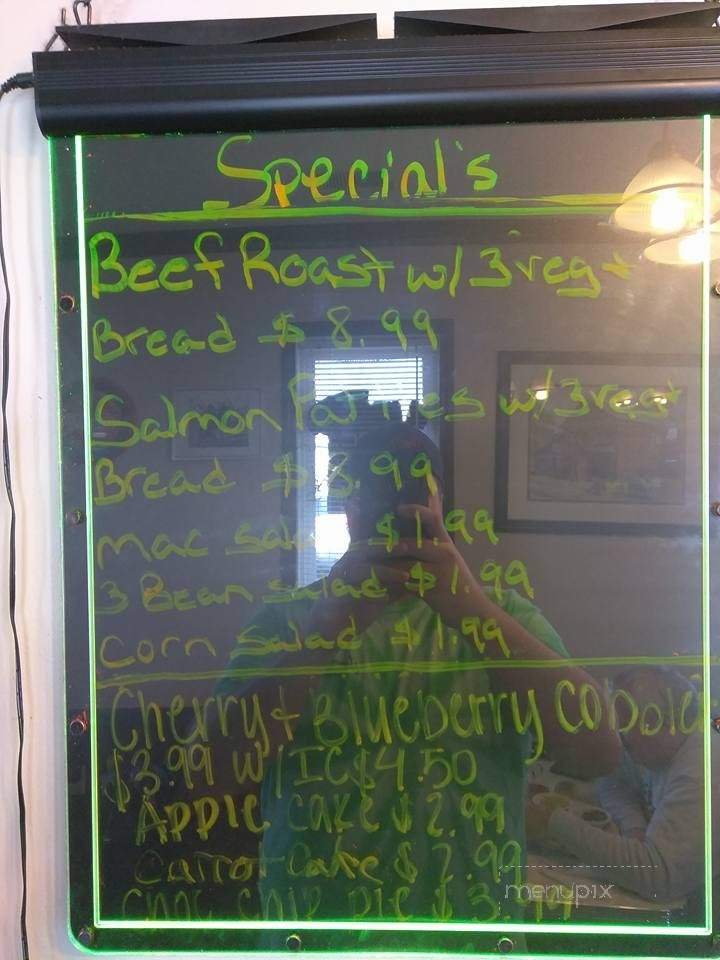 Special's
Beef Roast w/ 3 veg +
Bread $8.99
Salmon Patties w/ 3 veg +
Bread $8.99
mac salad $1.99
3 Bean salad $1.99
corn salad $1.99
Cherry + Blueberry Cobbler
$3.99 w/ IC $4.50
Apple cake $2.99
Carrot Cake $2.99
choc chip pie $3.99
menupix